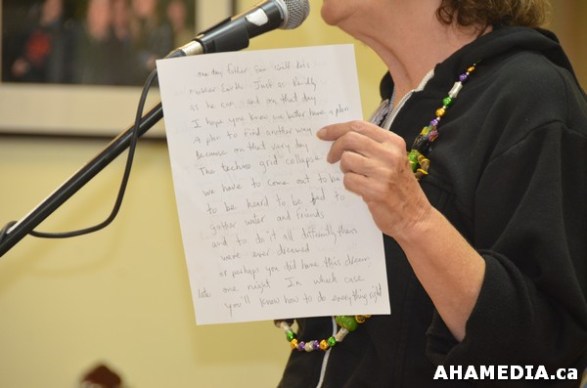 one day father Sun will hit
mother Earth. Just as Boldly
as he can and on that day
I hope you know we better have a plan
A plan to find another way
Because on that very day
The techno grid collapse
we have to come out to be
to be heard to be fed to
gather water and friends
and to do it all differently than
were ever dreamed
or perhaps you did have this dream
late one night In which case
you'll know how to do everything right
AHAMEDIA.ca